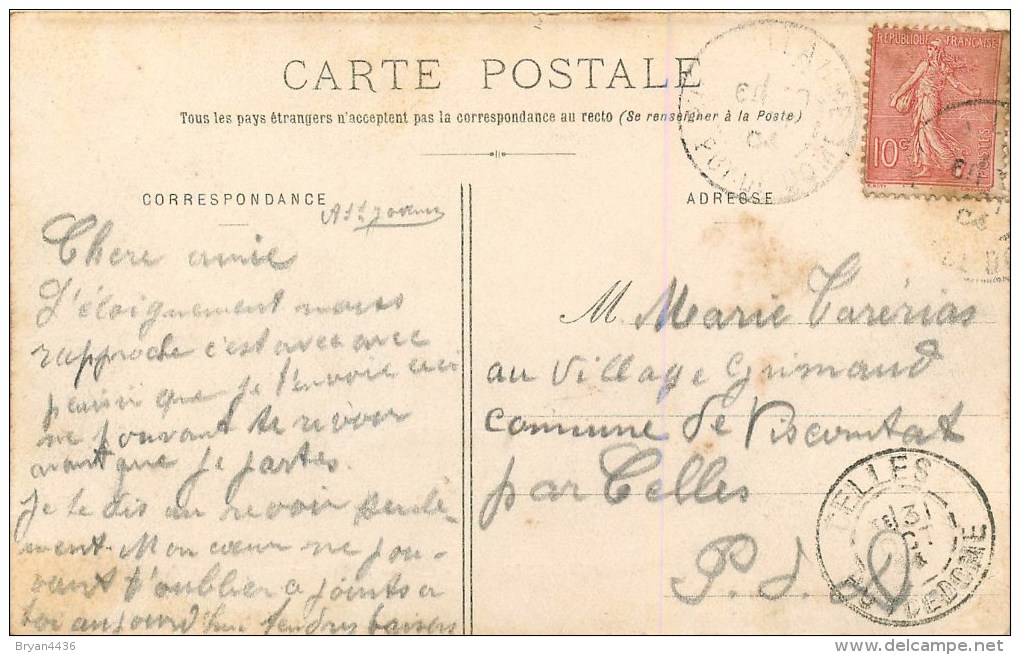 CARTE POSTALE
Tous les pays étrangers n'acceptent pas la correspondance au recto (Se renseigner à la Poste)
CORRESPONDANCE
ADRESSE
RÉPUBLIQUE FRANÇAISE
10c
POSTES
Chere amie
L'éloignement nous
rapproche c'est avec
que je t'envoie ceci
ne pouvant te revoir
avant que je partes
je te dis au revoir seule-
ment. Mon cœur ne pou-
vant t'oublier a joints a
toi aujourd'hui tendres baisers
M Marie Varérias
au village Grimaud
commune de Viscomtat
par Celles
P. d. D
CELLES
PUY DE DOME
31
Bryan4436
delcampe.net